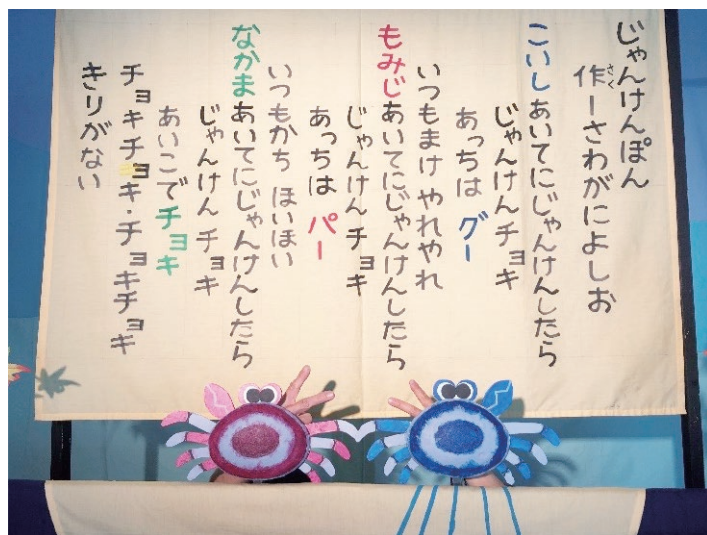 じゃんけんぽん
作ーさわがによしお
さく
こいしあいてにじゃんけんしたら
じゃんけんチョキ
あっちは グー
いつもまけ やれやれ
もみじあいてにじゃんけんしたら
じゃんけんチョキ
あっちは パー
いつもかち ほいほい
なかまあいてにじゃんけんしたら
じゃんけんチョキ
あいこでチョキ
チョキチョキ・チョキチョキ
きりがない